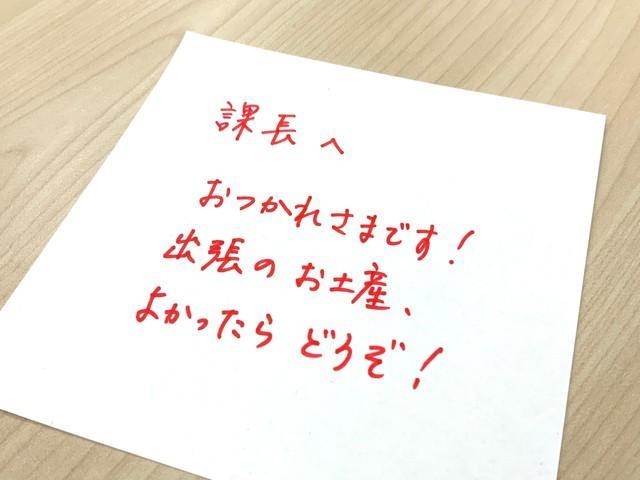 課長へ
おつかれさまです!
出張のお土産、
よかったらどうぞ!